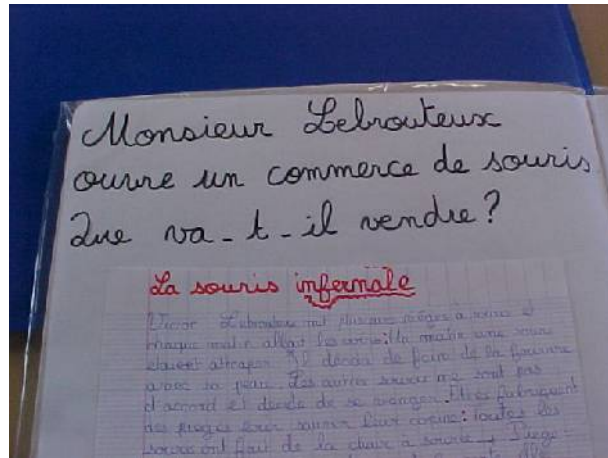 Monsieur Lebrouteux
ouvre un commerce de souris
Que va-t-il vendre ?
La souris infernale
Victor Lebrouteux met plusieurs pièges à souris et
chaque matin allait les voir : Un matin une souris
attraper Il décida de faire de la fourrure
avec sa peau. Les autres souris ne sont pas
d'accord et décide de se venger. Elles fabriquent
des pièges pour sauver leur copine : toutes les
souris ont fait de la chair à souris